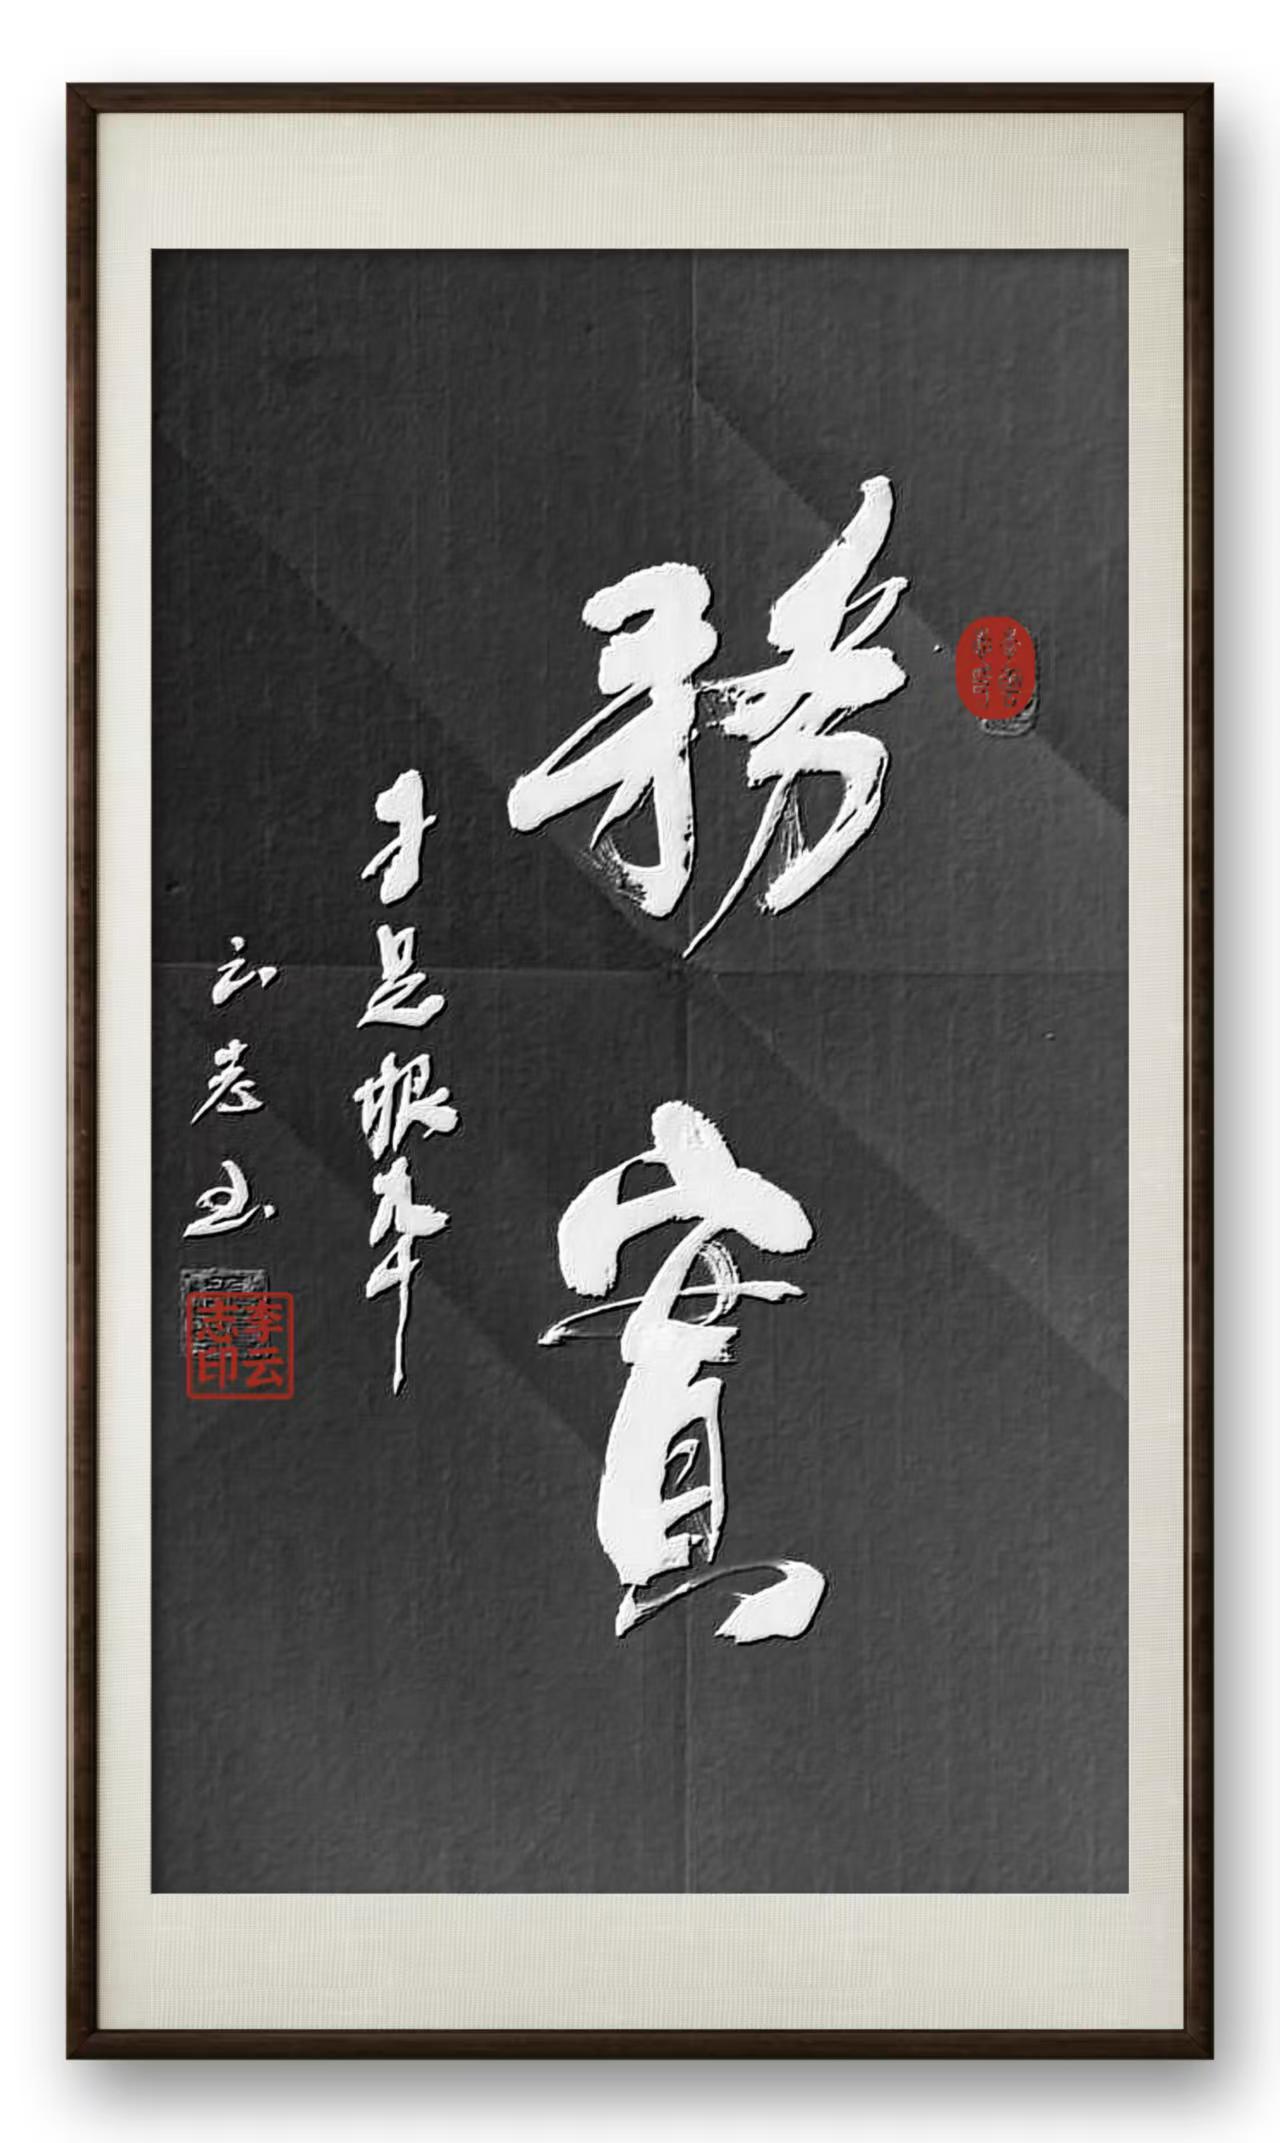 務實
才是根本
云志书
李云志印